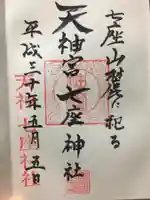 七座山麓に祀る
天神宮七座神社
平成三十年五月五日